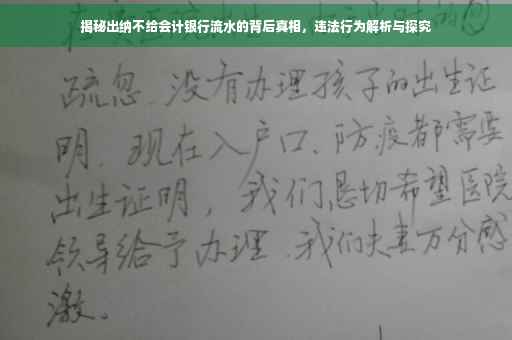 揭秘出纳不给会计银行流水的背后真相，违法行为解析与探究
疏忽.没有办理孩子的出生证
明.现在入户口、防疫都需要
出生证明，我们恳切希望医院
领导给予办理.我们夫妻万分感
激。